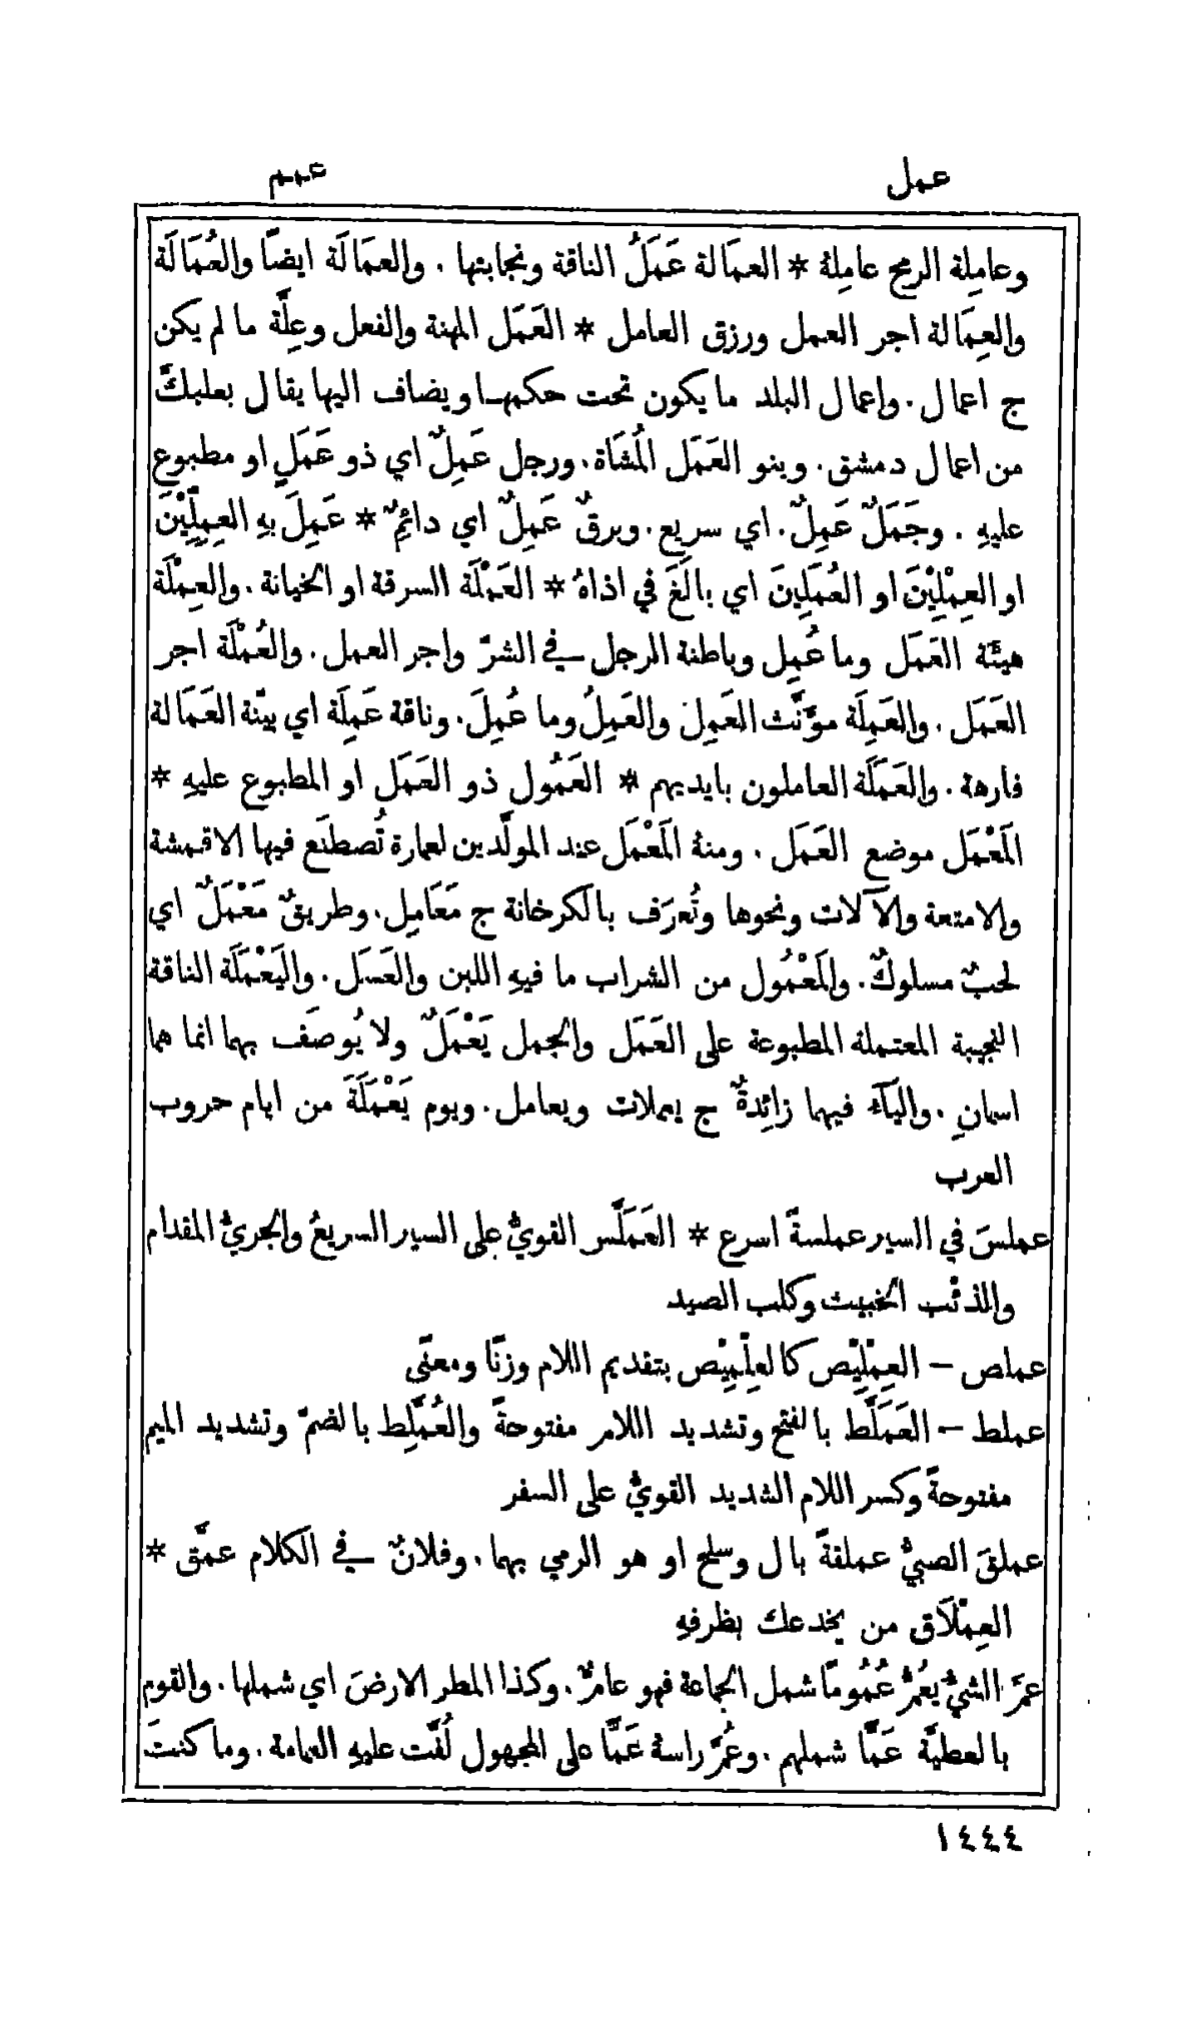 عمل
عمم
وعامِلة الرمح عامِلهُ * العمَالة عَمَلُ الناقة ونجابتها . والعمَالَة ايضًا والعُمَالَة
والعِمَالة اجر العمل ورزق العامل * العَمَل المهنة والفعل وعِلَّة ما لم يكن
ج اعمال . واعمال البلد ما يكون تحت حكمها ويضاف اليها يقال بعلبكّ
من اعمال دمشق . وبنو العَمَل المُشَاة . ورجل عَمِلٌ اي ذو عَمَلٍ او مطبوع
عليهِ . وجَمَلٌ عَمِلٌ . اي سريع . وبرقٌ عَمِلٌ اي دائِمٌ * عَمِلَ بهِ العِمِلِّيْنَ
او العِمْلِيْنَ او العُمَلِينَ اي بالَغَ في اذاهُ * العَمْلَة السرقة او الخيانة . والعِمْلَة
هيئَة العَمَل وما عُمِل وباطنة الرجل في الشرّ واجر العمل . والعُمْلَة اجر
العَمَل . والعَمِلَة موَّنَّث العَمِل والعَمِلُ وما عُمِلَ . وناقة عَمِلَة اي بيّنة العَمَالة
فارهة . والعَمَلَة العاملون بايديهم * العَمُول ذو العَمَل او المطبوع عليهِ *
المَعْمَل موضع العَمَل . ومنهُ المَعْمَل عند المولَّدين لعمارة تُصطنَع فيها الاقمشة
والامتعة والآلات ونحوها وتُعرَف بالكرخانة ج مَعَامِل . وطريقٌ مَعْمَلٌ اي
لحبٌ مسلوكٌ . والمَعْمُول من الشراب ما فيهِ اللبن والعَسَل . واليَعْمَلَة الناقة
النجيبة المعتملة المطبوعة على العَمَل والجمل يَعْمَلٌ ولا يُوصَف بهما انما هما
اسمانِ . واليآء فيهما زائِدةٌ ج يعملات ويعامل . ويوم يَعْمَلَةَ من ايام حروب
العرب
عملسَ في السير عملسةً اسرع * العَمَلَّس القويُّ على السير السريعُ والجريُّ المقدام
والذئب الخبيث وكلب الصيد
عملص – العِمْلِيْص كالعِلْمِيْص بتقديم اللام وزنًا ومعنًى
عملط – العَمَلَّط بالفتح وتشديد اللام مفتوحةً والعُمَّلِط بالضمّ وتشديد الميم
مفتوحةً وكسر اللام الشديد القويُّ على السفر
عملقَ الصبيُّ عملقةً بال وسلح او هو الرمي بهما . وفلانٌ في الكلام عمَّق *
العِمْلَاق من يخدعك بظرفهِ
عمَّ الشيُّ يعُمُّ عُمُومًا شمل الجماعة فهو عامٌّ . وكذا المطر الارضَ اي شملها . والقوم
بالعطيَّة عَمًّا شملهم . وعُمَّ راسهُ عَمًّا على المجهول لُفَّت عليهِ العمامة . وما كنتَ
١٤٤٤